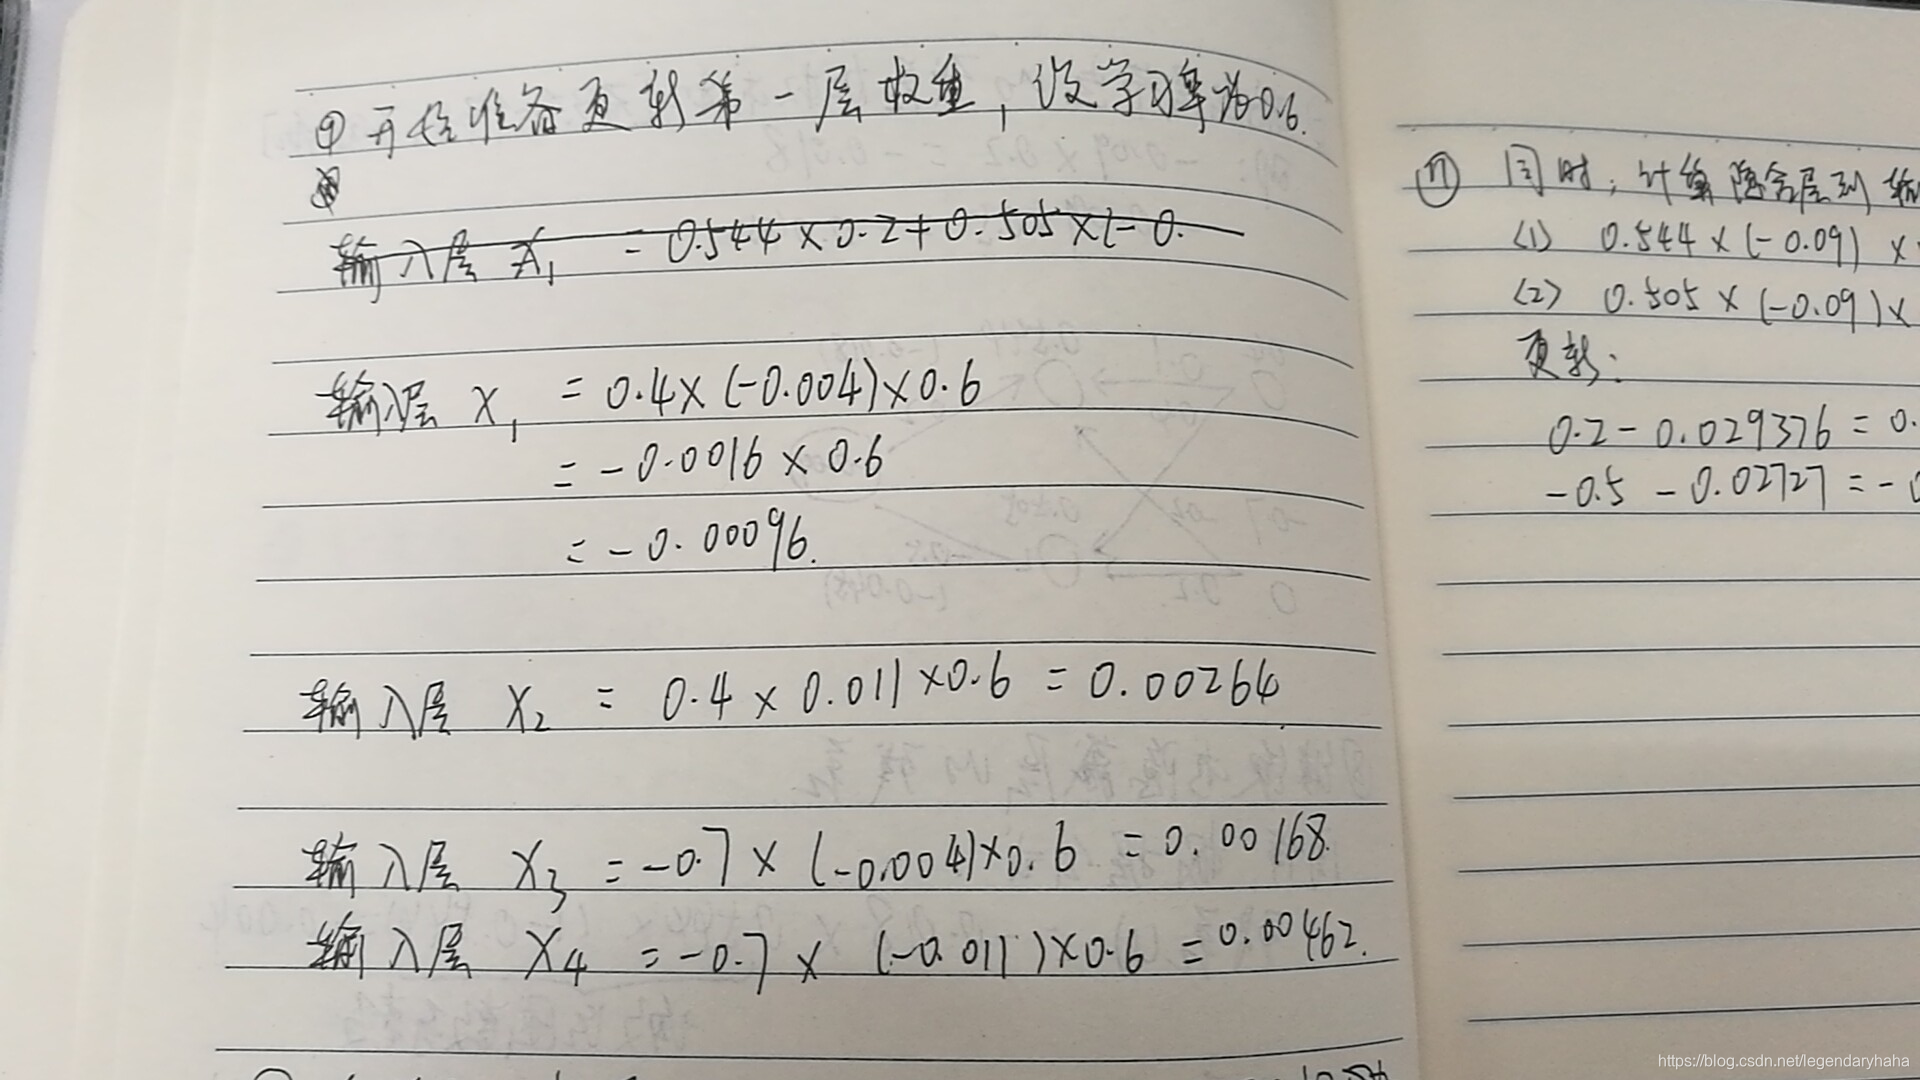 ⑨ 开始准备更新第一层权重,设学习率为0.6.
输入层 X₁ = 0.544×0.2+0.505×(-0.
输入层 X₁ = 0.4×(-0.004)×0.6
= -0.0016×0.6
= -0.00096.
输入层 X₂ = 0.4×0.011×0.6 = 0.00264
输入层 X₃ = -0.7×(-0.004)×0.6 = 0.00168.
输入层 X₄ = -0.7×(-0.011)×0.6 = 0.00462.
⑪ 同时,计算隐含层到输
(1) 0.544×(-0.09)×
(2) 0.505×(-0.09)×
更新:
0.2-0.029376=0.
-0.5-0.02727=-0
https://blog.csdn.net/legendaryhaha